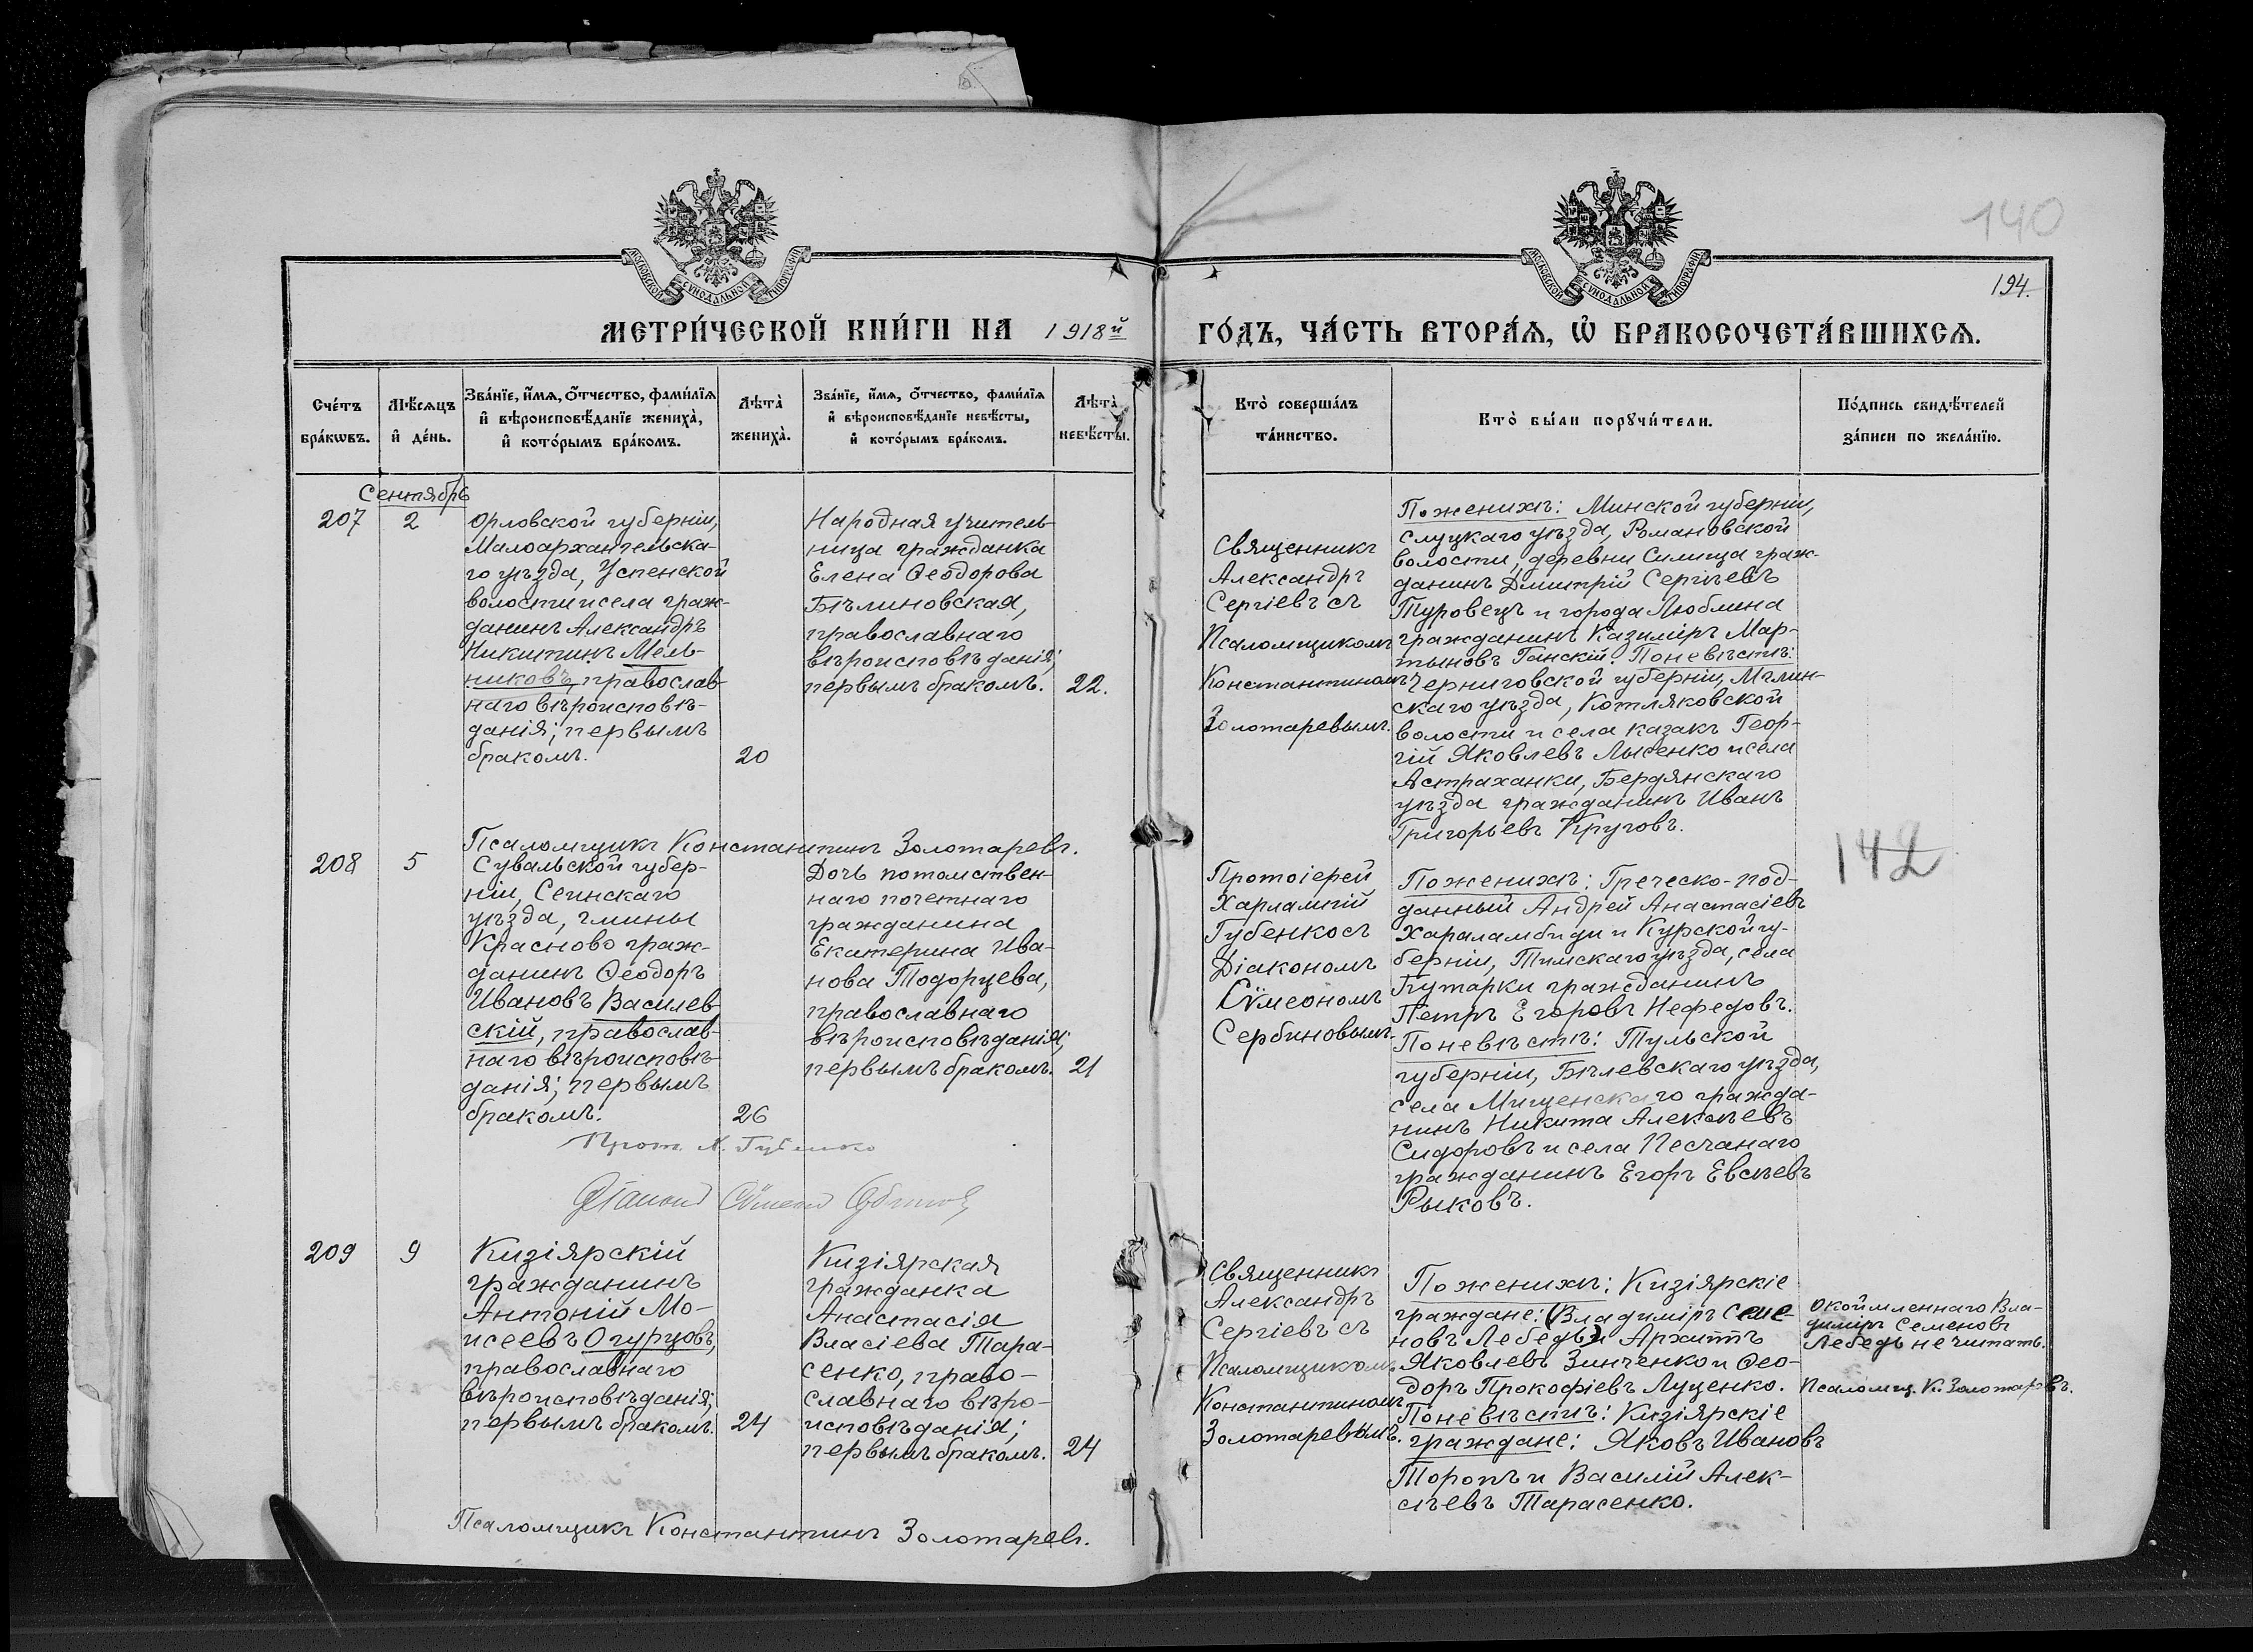 140
194.
МОСКОВСКОЙ СѴНОДАЛЬНОЙ ТИПОГРАФІИ
МОСКОВСКОЙ СѴНОДАЛЬНОЙ ТИПОГРАФІИ
МЕТРИ́ЧЕСКОЙ КНИ́ГИ НА 1918й ГО́ДЪ, ЧА́СТЬ ВТОРА́Ѧ, Ѡ҆ БРАКОСОЧЕТА́ВШИХСѦ.
Сче́тъ
бра́кѡвъ.
Мѣ́сѧцъ
и҆ де́нь.
Зва́нїе, и҆́мѧ, ѻ҆́тчество, фами́лїѧ
и҆ вѣроисповѣ́данїе жениха̀,
и҆ кото́рымъ бра́комъ.
Лѣта̀
жениха̀.
Зва́нїе, и҆́мѧ, ѻ҆́тчество, фами́лїѧ
и҆ вѣроисповѣ́данїе невѣ́сты,
и҆ кото́рымъ бра́комъ.
Лѣта̀
невѣ́сты.
Кто̀ соверша́лъ
та́инство.
Кто̀ бы́ли порꙋчи́тели.
По́дпись свидѣ́телей
за́писи по жела́нїю.
Сентябрь
207
2
Орловской губерніи,
Малоархангельска-
го уѣзда, Успенской
волости и села граж-
данинъ Александръ
Никитинъ Мель-
никовъ, православ-
наго вѣроисповѣ-
данія; первымъ
бракомъ.
20
Народная учитель-
ница гражданка
Елена Ѳеодорова
Бѣлиновская,
православнаго
вѣроисповѣданія;
первымъ бракомъ.
22.
Священникъ
Александръ
Сергіевъ съ
Псаломщикомъ
Константиномъ
Золотаревымъ.
По женихѣ: Минской губерніи,
Слуцкаго уѣзда, Романовской
волости, деревни Силища граж-
данинъ Дмитрій Сергѣевъ
Туровецъ и города Люблина
гражданинъ Казиміръ Мар-
тыновъ Ганскій. По невѣстѣ:
Черниговской губерніи, Мглин-
скаго уѣзда, Котляковской
волости и села казакъ Геор-
гій Яковлевъ Лысенко и села
Астраханки, Бердянскаго
уѣзда гражданинъ Иванъ
Григорьевъ Круговъ.
Псаломщикъ Константинъ Золотаревъ.
142
208
5
Сувальской губер-
ніи, Сейнскаго
уѣзда, гмины
Красново граж-
данинъ Ѳеодоръ
Ивановъ Василев-
скій, православ-
наго вѣроисповѣ-
данія; первымъ
бракомъ.
26
Дочь потомствен-
наго почетнаго
гражданина
Екатерина Ива-
нова Тодорцева,
православнаго
вѣроисповѣданія;
первымъ бракомъ.
21
Протоіерей
Харлампій
Губенко съ
Діакономъ
Сѵмеономъ
Сербиновымъ.
По женихѣ: Греческо-под-
данный Андрей Анастасіевъ
Хараламбиди и Курской гу-
берніи, Тимскаго уѣзда, села
Гутарки гражданинъ
Петръ Егоровъ Нефедовъ.
По невѣстѣ: Тульской
губерніи, Бѣлевскаго уѣзда,
села Мищенскаго гражда-
нинъ Никита Алексѣевъ
Сидоровъ и села Песчанаго
гражданинъ Егоръ Евсѣевъ
Рыковъ.
Прот. Х. Губенко
Діаконъ Сѵмеонъ Сербиновъ
209
9
Кизіярскій
гражданинъ
Антоній Мо-
исеевъ Огурцовъ,
православнаго
вѣроисповѣданія;
первымъ бракомъ.
24
Кизіярская
гражданка
Анастасія
Власіева Тара-
сенко, право-
славнаго вѣро-
исповѣданія;
первымъ бракомъ.
24
Священникъ
Александръ
Сергіевъ съ
Псаломщикомъ
Константиномъ
Золотаревымъ.
По женихѣ: Кизіярскіе
граждане: (Владиміръ Семе-
новъ Лебедь) и Архиппъ
Яковлевъ Зинченко и Ѳео-
доръ Прокофіевъ Луценко.
По невѣстѣ: Кизіярскіе
граждане: Яковъ Ивановъ
Торопъ и Василій Алек-
сѣевъ Тарасенко.
Окоймленнаго Вла-
диміръ Семеновъ
Лебедь не читать.
Псаломщ. К. Золотаревъ.
Псаломщикъ Константинъ Золотаревъ.